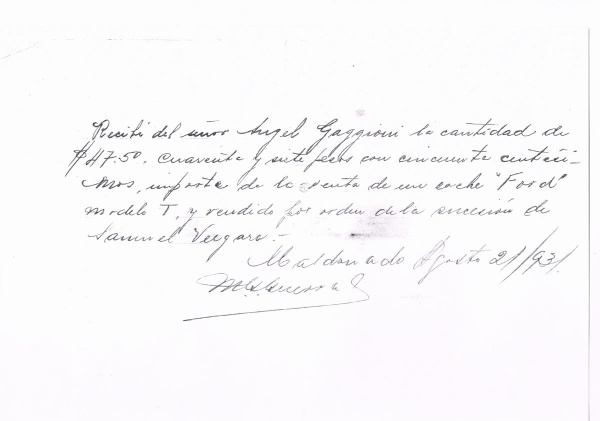 Recibí del señor Angel Gaggioni la cantidad de
$47.50. Cuarenta y siete pesos con cincuenta centési-
mos, importe de la venta de un coche "Ford"
modelo T, y vendido por orden de la sucesión de
Samuel Vergara.-
Maldonado Agosto 21/931.